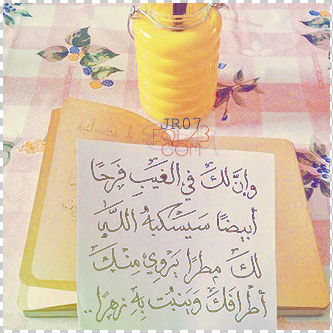 JR07
وَإنَّ لكَ في الغَيبِ فَرحًا
أبيضًا سَيَسكبهُ اللَّـهُ
لكَ مطرا يَروِي مِنْـكَ
أطرَافَكَ وَينبُت بِهِ زَهرا..